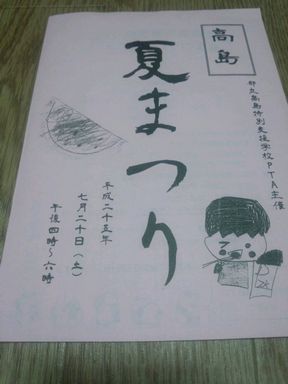 高島
夏まつり
都立高島特別支援学校PTA主催
平成二十五年
七月二十日(土)
午後四時~六時